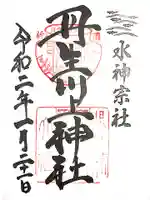 水神宗社
丹生川上神社
令和二年一月二十一日